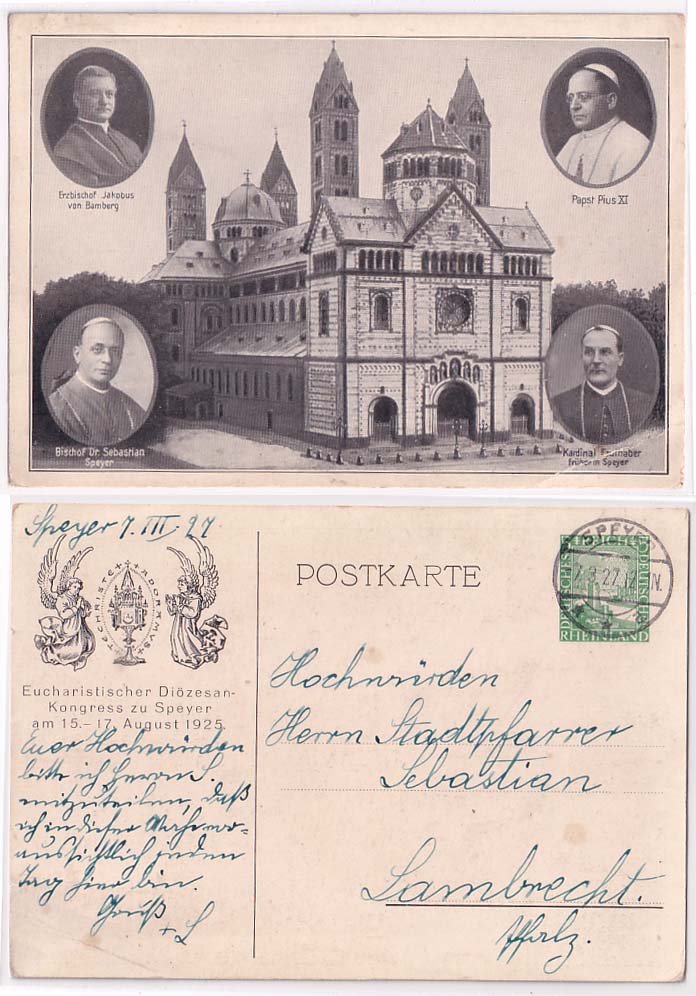 Erzbischof Jakobus
von Bamberg
Papst Pius XI
Bischof Dr. Sebastian
Speyer
Kardinal Faulhaber
früher in Speyer
Speyer 7. III. 27
TE CHRISTE ADORAMUS
Eucharistischer Diözesan-
Kongress zu Speyer
am 15.–17. August 1925
Euer Hochwürden
bitte ich Herrn S.
mitzuteilen, daß
ich in dieser Woche vor=
aussichtlich jeden
Tag hier bin.
Gruß
+ L
POSTKARTE
SPEYER
7.3.27
N.
DEUTSCHES REICH
RHEINLAND
Hochwürden
Herrn Stadtpfarrer
Sebastian
Lambrecht.
Pfalz.